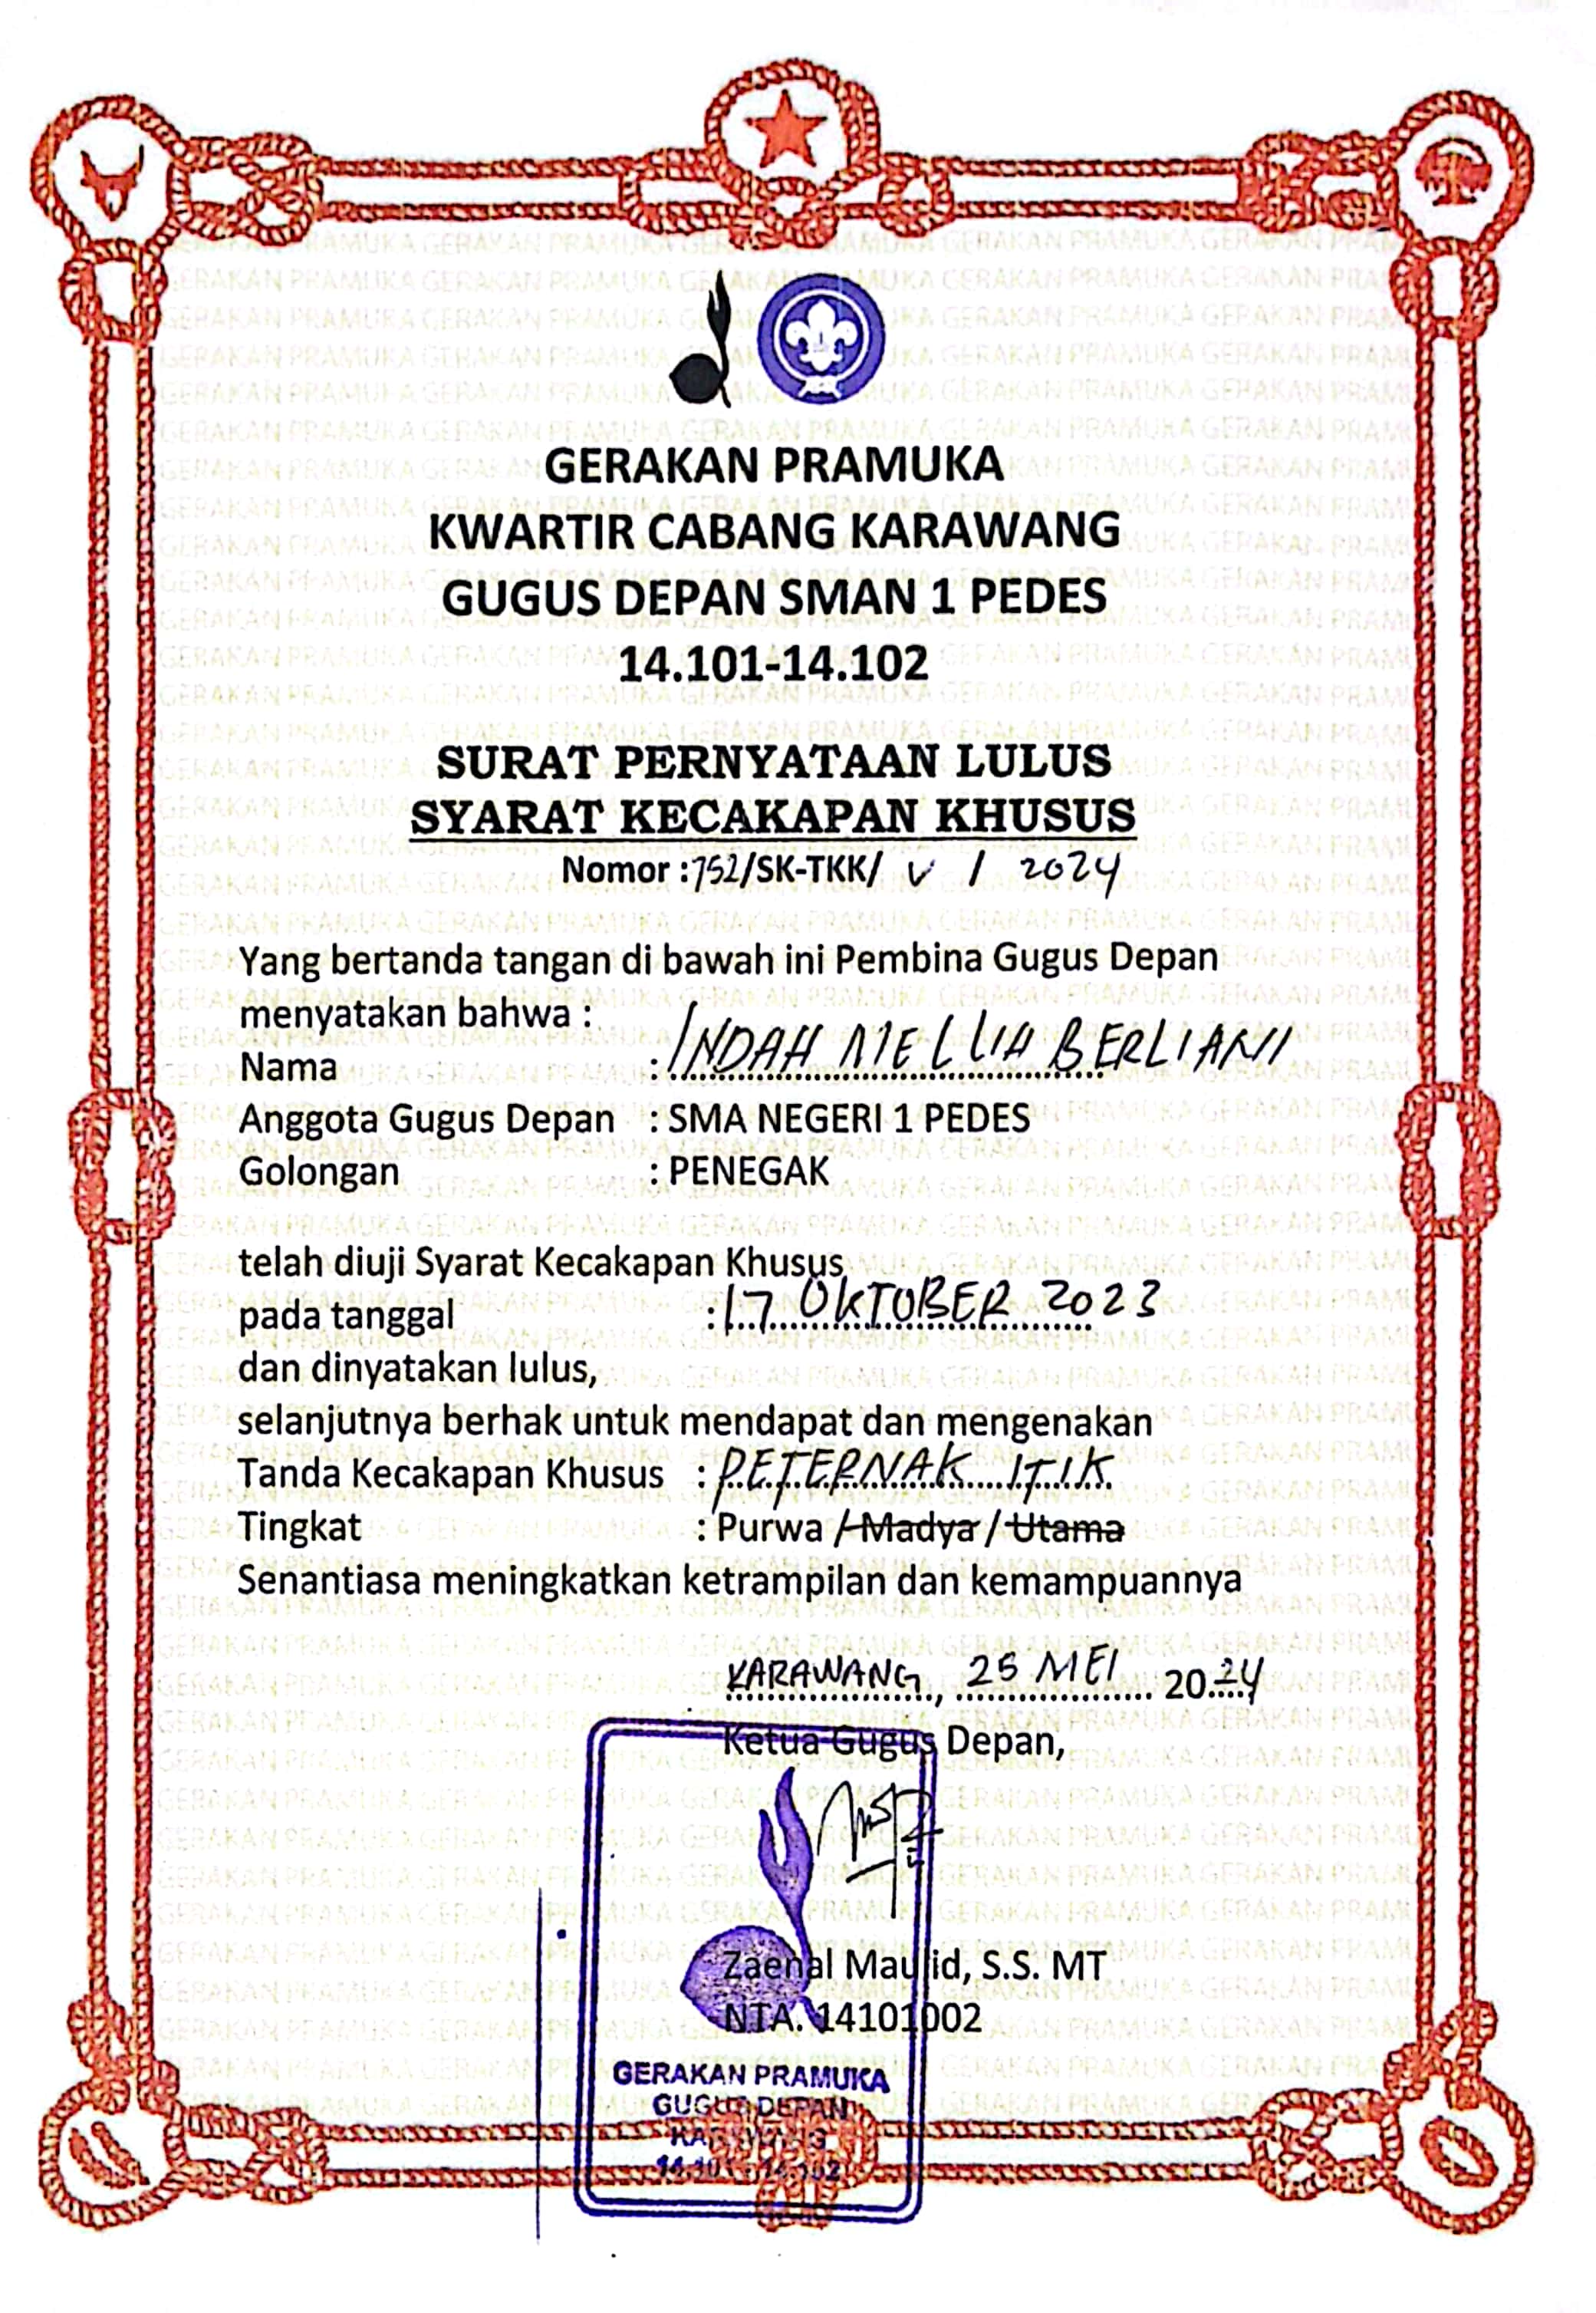 GERAKAN PRAMUKA
KWARTIR CABANG KARAWANG
GUGUS DEPAN SMAN 1 PEDES
14.101-14.102
SURAT PERNYATAAN LULUS
SYARAT KECAKAPAN KHUSUS
Nomor : 752/SK-TKK/ V / 2024
Yang bertanda tangan di bawah ini Pembina Gugus Depan
menyatakan bahwa :
Nama : INDAH MELLIA BERLIANI
Anggota Gugus Depan : SMA NEGERI 1 PEDES
Golongan : PENEGAK
telah diuji Syarat Kecakapan Khusus
pada tanggal : 17 OKTOBER 2023
dan dinyatakan lulus,
selanjutnya berhak untuk mendapat dan mengenakan
Tanda Kecakapan Khusus : PETERNAK ITIK
Tingkat : Purwa / Madya / Utama
Senantiasa meningkatkan ketrampilan dan kemampuannya
KARAWANG, 25 MEI 2024
Ketua Gugus Depan,
Zaenal Maulid, S.S. MT
NTA. 14101002
GERAKAN PRAMUKA
GUGUS DEPAN
KARAWANG
14.101 - 14.102